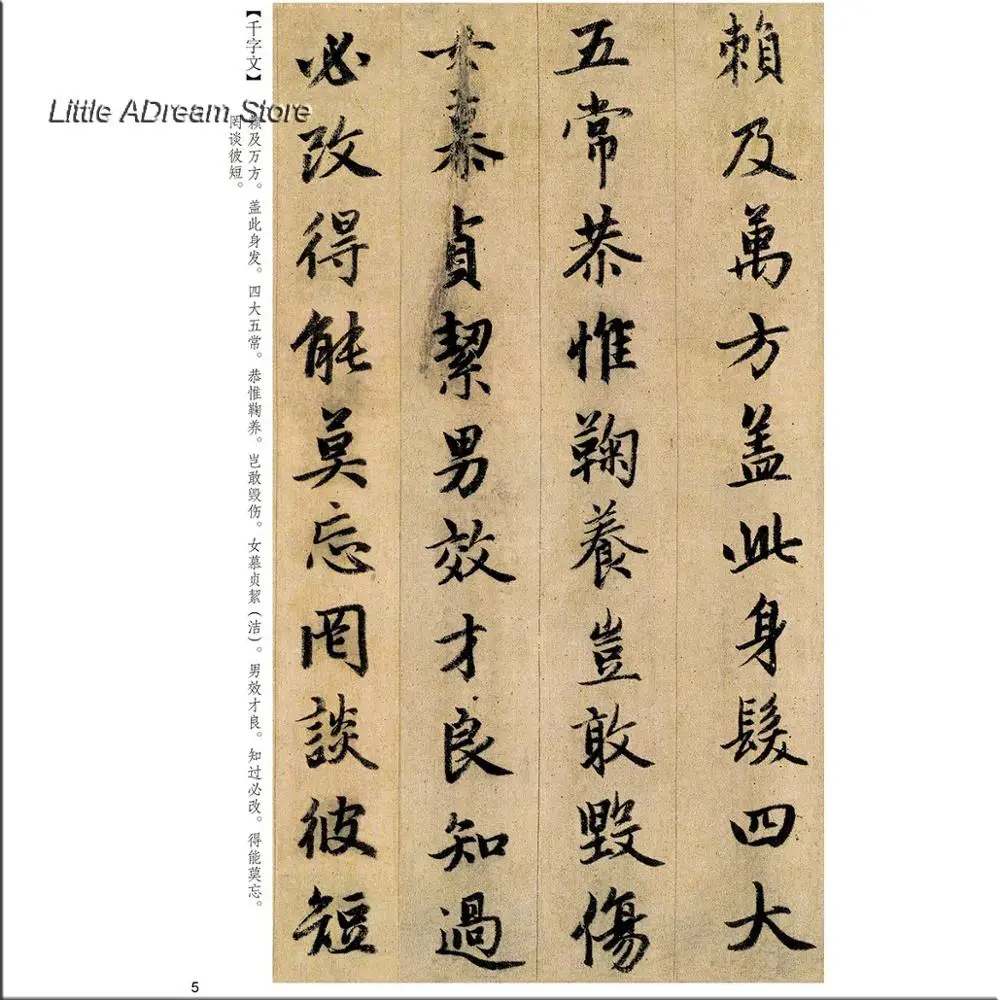 賴及萬方盖此身髮四大
五常恭惟鞠養豈敢毀傷
女慕貞絜男效才良知過
必改得能莫忘罔談彼短
【千字文】
赖及万方。盖此身发。四大五常。恭惟鞠养。岂敢毁伤。女慕贞絜（洁）。男效才良。知过必改。得能莫忘。
罔谈彼短。
Little ADream Store
5